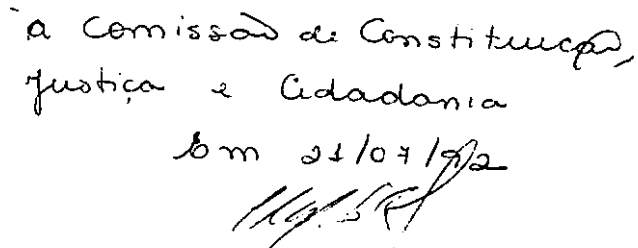 à Comissão de Constituição,
Justiça e Cidadania
Em 21/07/92